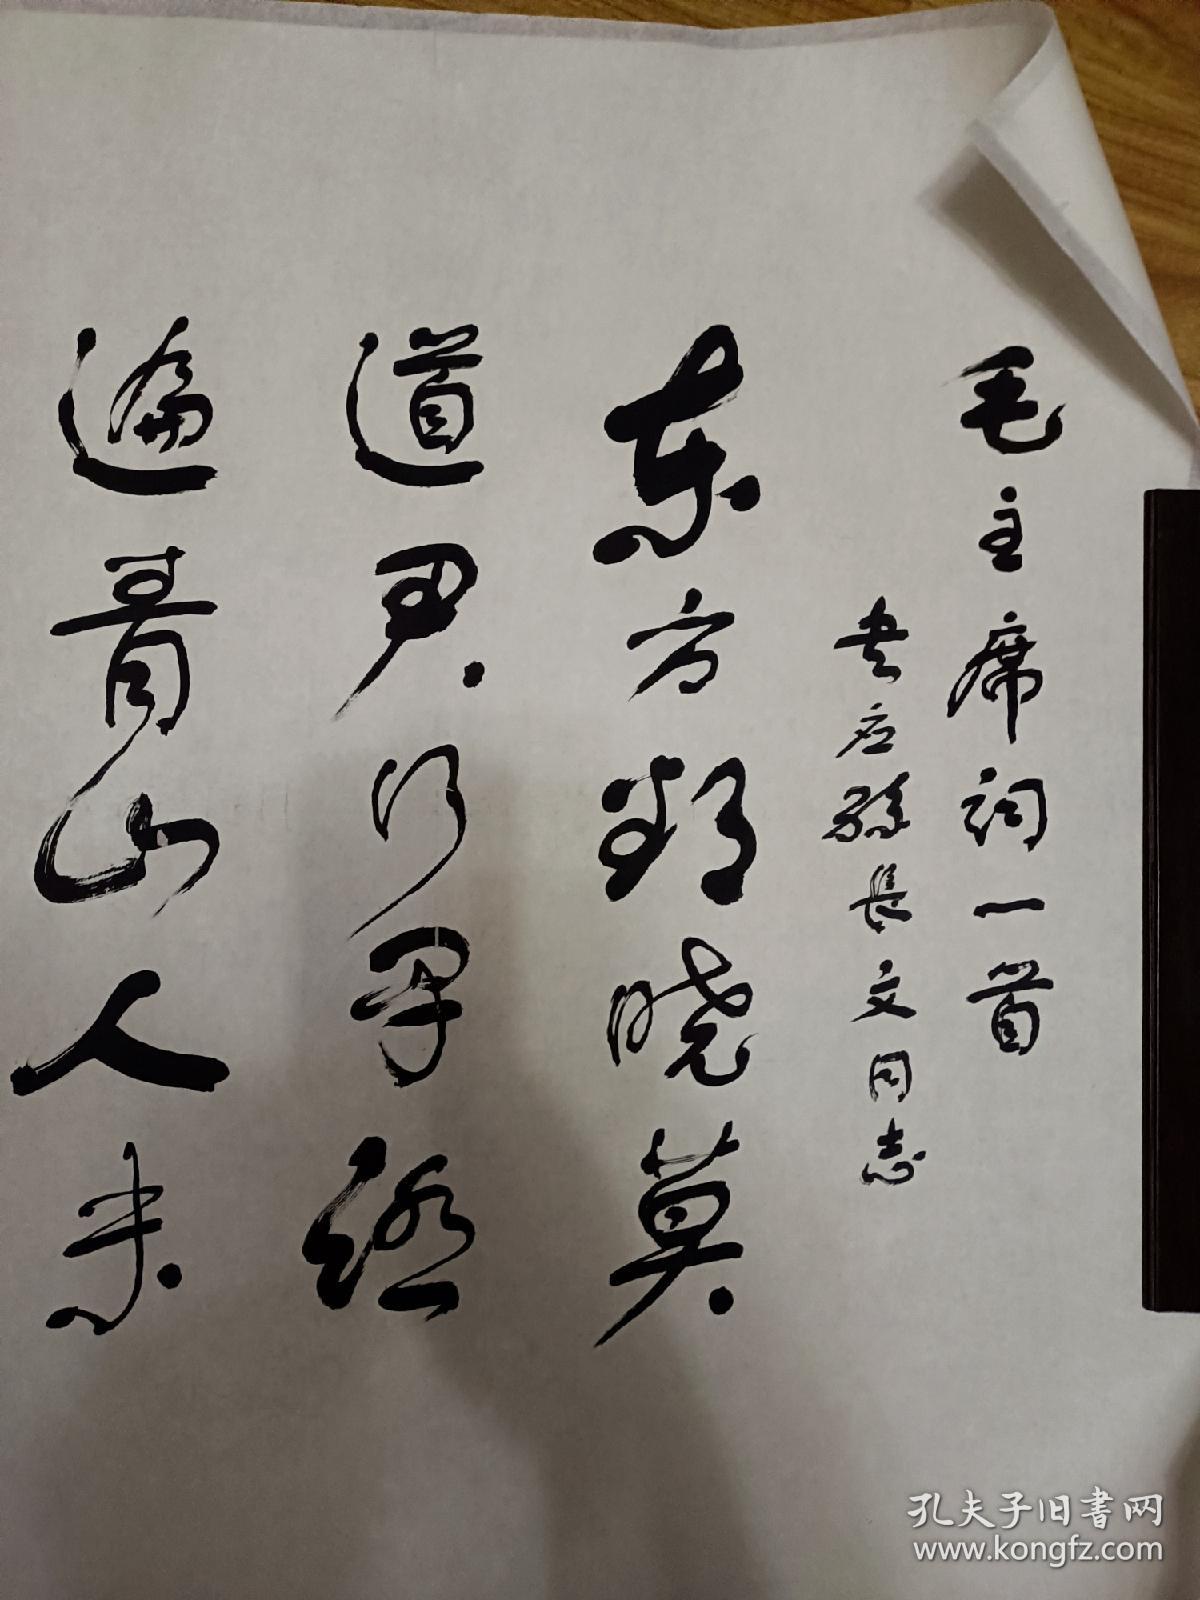 毛主席词一首
书应孙长文同志
东方欲晓莫
道君行早踏
遍青山人未
孔夫子旧書网
www.kongfz.com